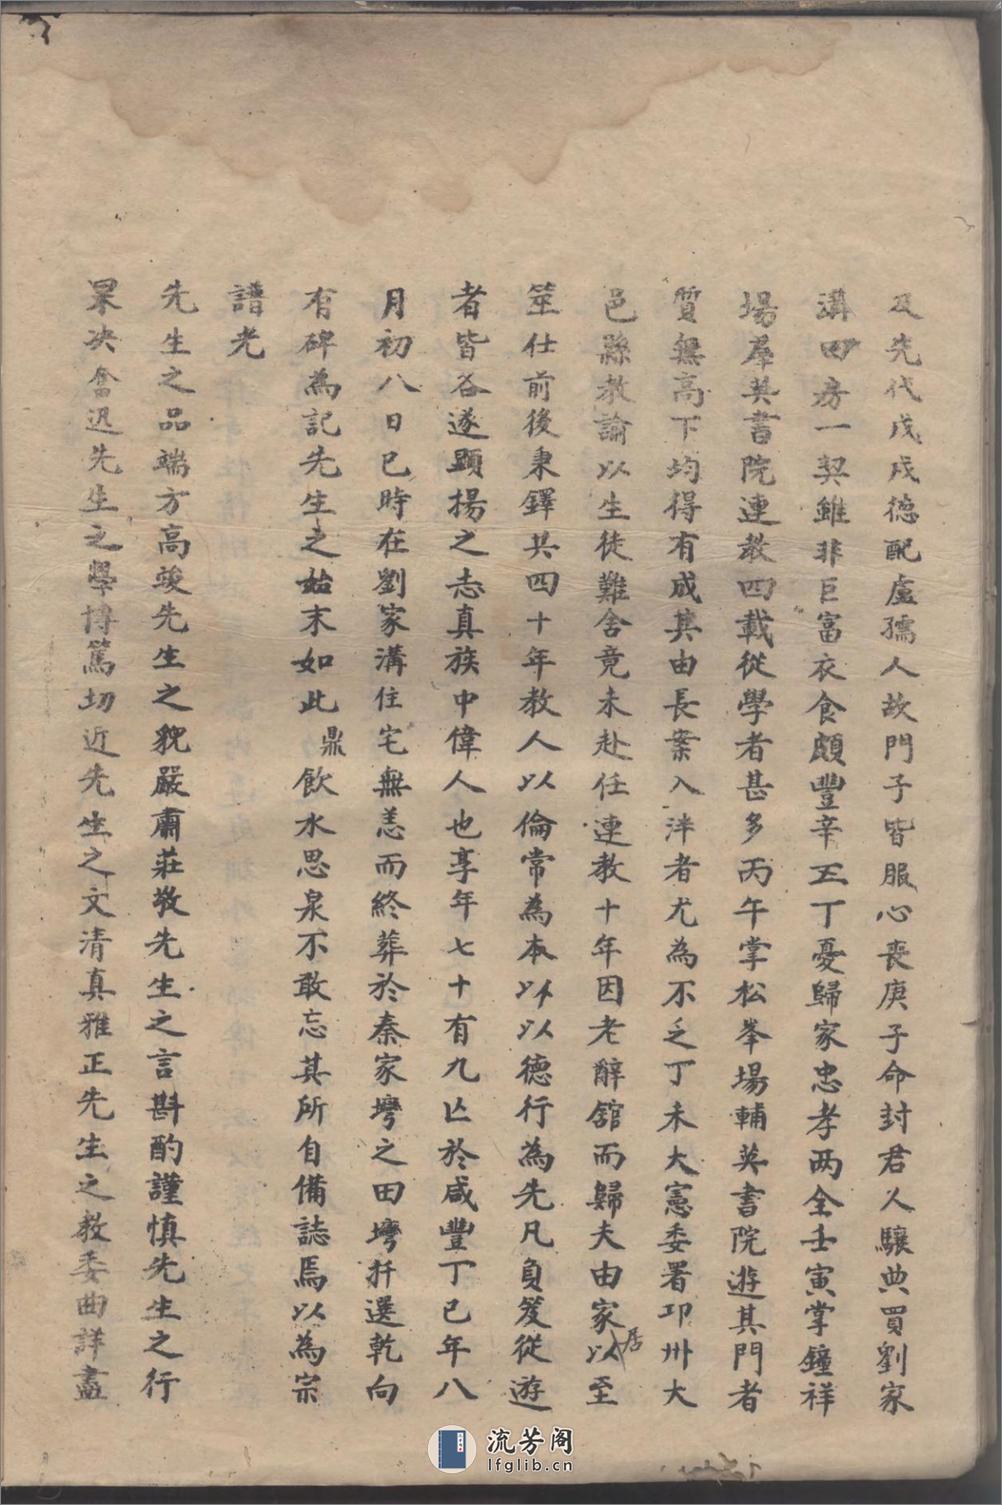 及先代戊戌德配盧孺人故門子皆服心喪庚子命封君人驤典買劉家
溝田房一契雖非巨富衣食頗豐辛丑丁憂歸家忠孝两全壬寅掌鐘祥
場羣英書院連教四載從學者甚多丙午掌松峯場輔英書院遊其門者
質無高下均得有成其由長案入泮者尤為不乏丁未大憲委署邛州大
邑縣教諭以生徒難舍竟未赴任連教十年因老辭舘而歸夫由家居以至
筮仕前後秉鐸共四十年教人以倫常為本以以德行為先凡負笈從遊
者皆各遂顯揚之志真族中偉人也享年七十有九亡於咸豐丁巳年八
月初八日巳時在劉家溝住宅無恙而終葬於秦家塆之田塆扦選乾向
有碑為記先生之始末如此鼎飲水思泉不敢忘其所自備誌焉以為宗
譜光
先生之品端方高竣先生之貌嚴肅莊敬先生之言斟酌謹慎先生之行
果决奮迅先生之學博篤切近先生之文清真雅正先生之教委曲詳盡
流芳阁
lfglib.cn